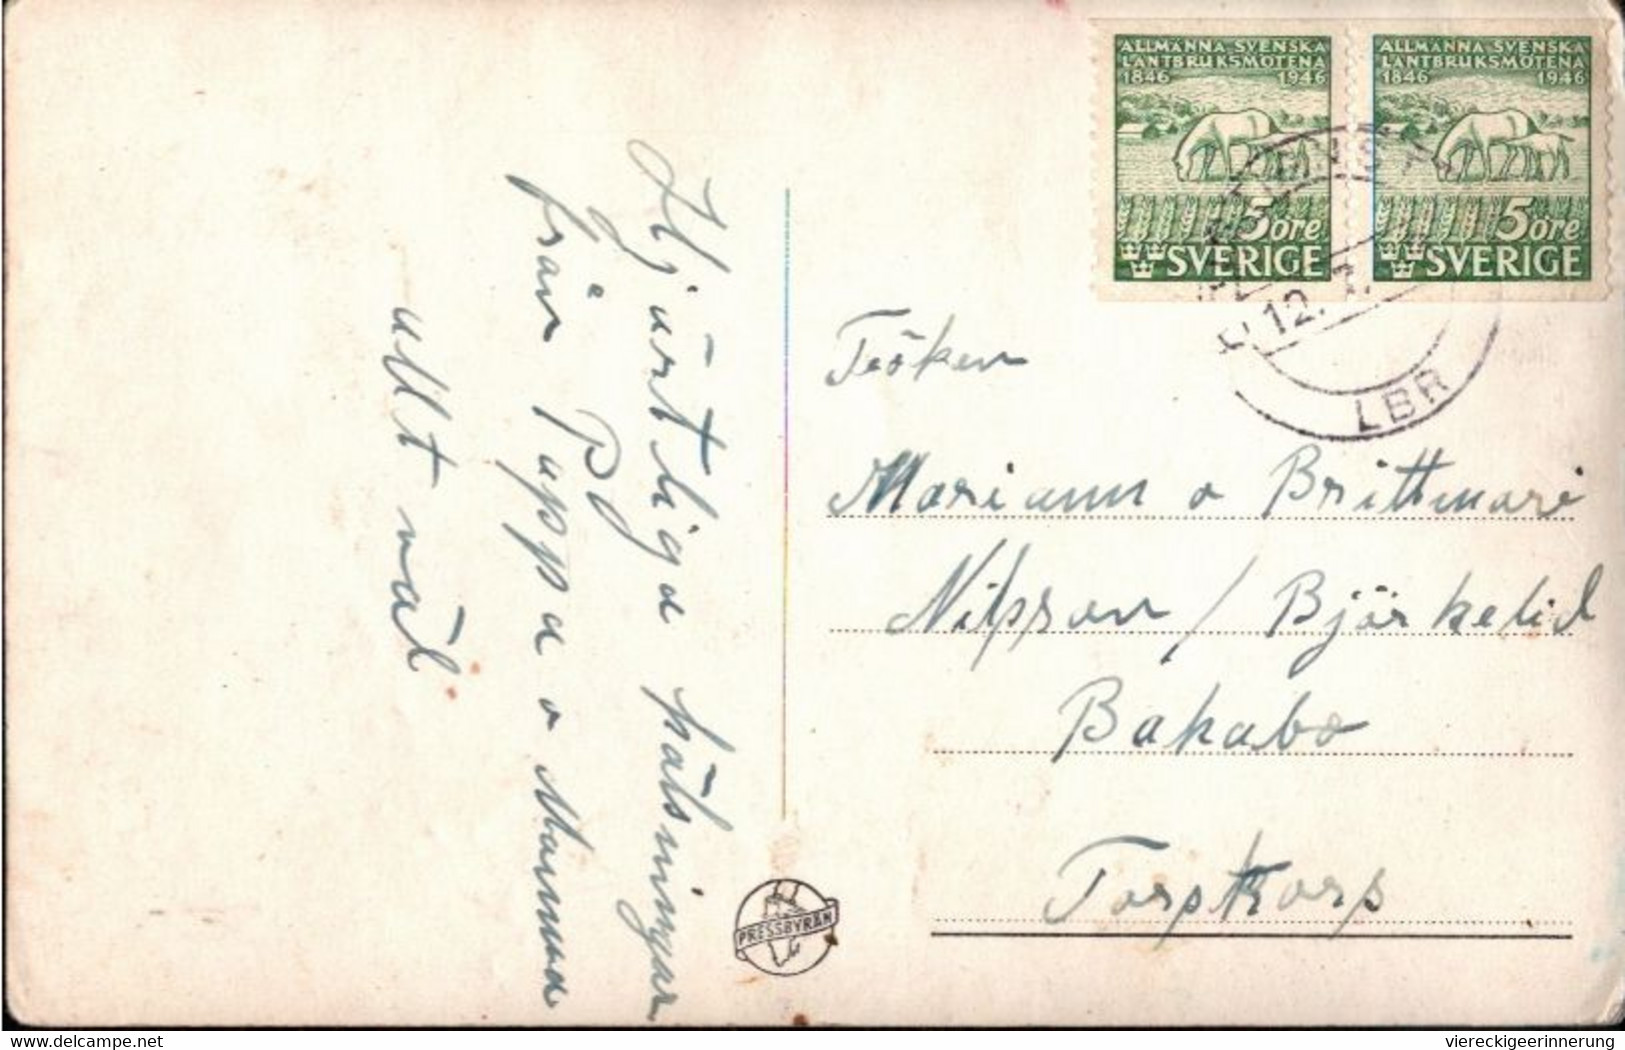 Hjärtliga hälsningar
från Pappa o Mamma
allt väl
ALLMÄNNA SVENSKA
LANTBRUKSMÖTENA
1846 1946
5 öre
SVERIGE
ALLMÄNNA SVENSKA
LANTBRUKSMÖTENA
1846 1946
5 öre
SVERIGE
12.
LBR
Fröken
Mariann o Brittmari
Nilsson / Björkelid
Bakabo
Torskors
PRESSBYRÅN
https://www.delcampe.net
viereckigeerinnerung